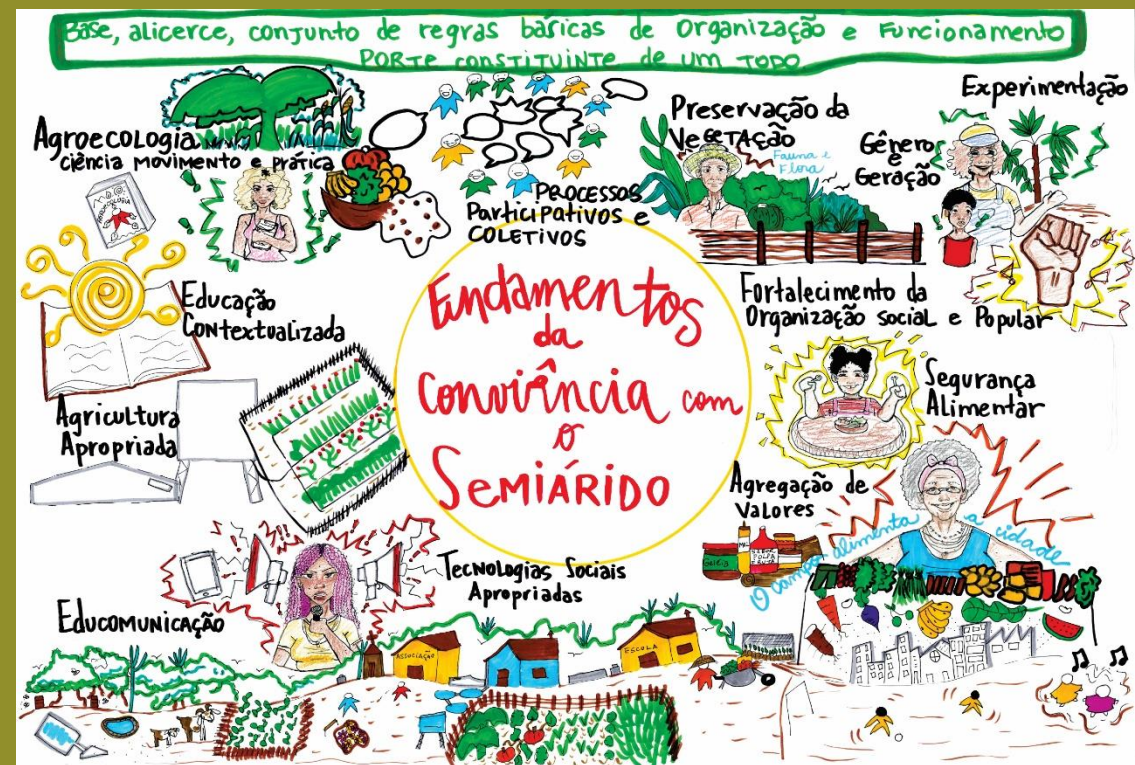 Base, alicerce, conjunto de regras básicas de Organização e Funcionamento
PORTE CONSTITUINTE de UM TODO
Agroecologia
Ciência Movimento e Prática
PROCESSOS
Participativos e
COLETIVOS
Preservação da
VEGETAÇÃO
Fauna e
Flora
Experimentação
Gênero
e
Geração
AGROECOLOGIA
Educação
Contextualizada
Fundamentos
da
Convivência com
o
SEMIÁRIDO
Fortalecimento da
Organização social e Popular
Agricultura
Apropriada
Segurança
Alimentar
Agregação de
Valores
MEL
POLPA
Geleia
O campo alimenta a cidade
Tecnologias Sociais
Apropriadas
Educomunicação
ASSOCIAÇÃO
ESCOLA